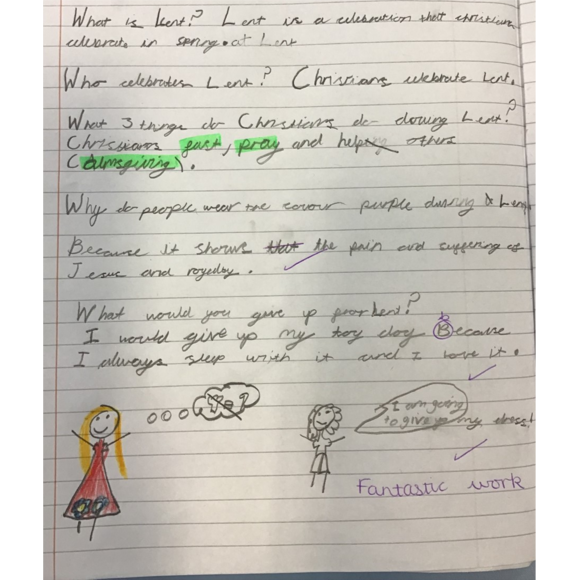 What is Lent? Lent is a celebration that christians
celebrate in spring. at Lent
Who celebrates Lent? Christians celebrate Lent.
What 3 things do Christians do doring Lent?
Chrissians fast, pray and help others
(almsgiving).
Why do people wear the colour purple during Lent
Because it shows that the pain and suffering of
Jesus and
What would you give up for Lent?
I would give up my toy dog Because
I always sleep with it and I love it.
I am going
to give up my dress!
Fantastic work